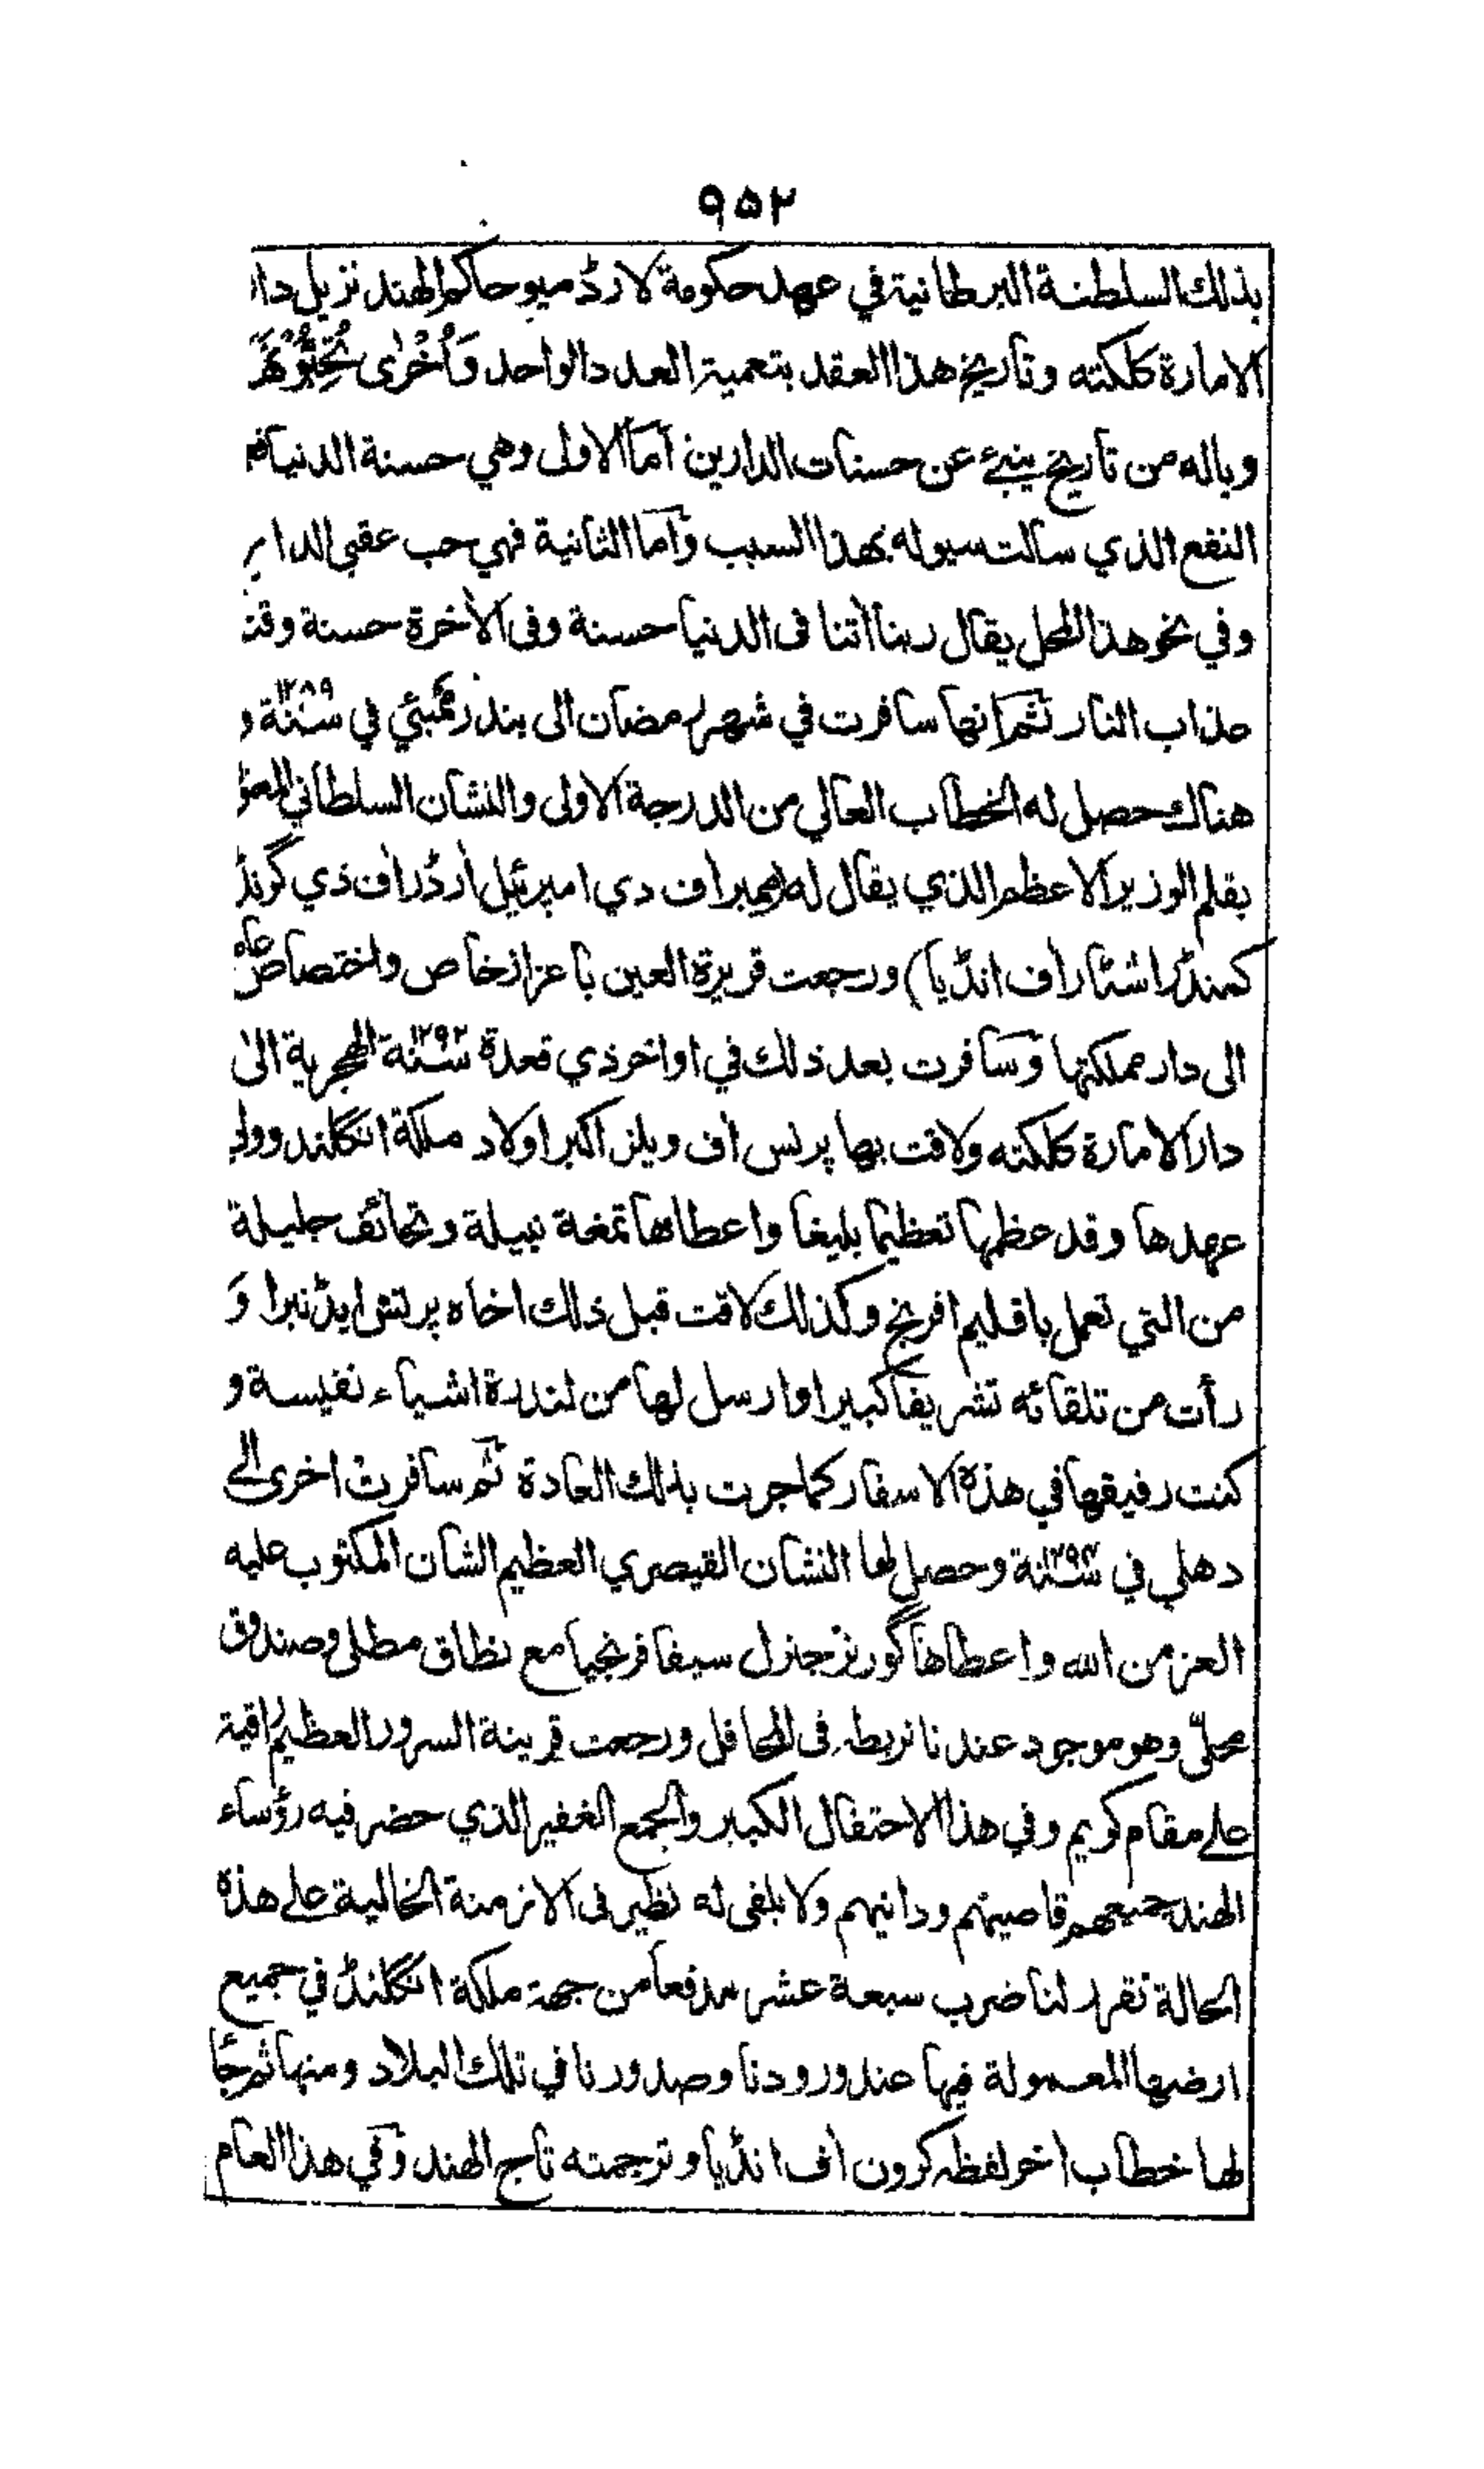 ٩٥٢
بذلك السلطنة البرطانية في عهد حكومة لارڈ ميو حاكم الهند نزيل دار
الامارة كلكته وتاريخ هذا العقد بتعمية العدد الواحد وَأُخْرٰى تُحِبُّوْنَهَا
وياله من تاريخ ينبئ عن حسنات الدارين اما الاولى وهي حسنة الدنيا فهي
النفع الذي سالت سيوله بهذا السبب واما الثانية فهي حب عقبى الدار
وفي نحو هذا المحل يقال ربنا اتنا فى الدنيا حسنة وفى الاخرة حسنة وقنا
عذاب النار ثم انها سافرت في شهر رمضان الى بندر ممبئي في سنة ١٢٨٩ و
هناك حصل له الخطاب العالي من الدرجة الاولى والنشان السلطاني المعزز
بقلم الوزير الاعظم الذي يقال له (ممبر اف دي امپرئيل ارڈر اف ذي گرنڈ
كمنڈر اشٹار اف انڈيا) ورجعت قريرة العين باعزاز خاص واختصاص عام
الى دار مملكتها وسافرت بعد ذلك في اواخر ذي قعدة سنة ١٢٩٢ الهجرية الى
دار الامارة كلكته ولاقت بها پرنس اف ويلز اكبر اولاد ملكة انگلند وولي
عهدها وقد عظمها تعظيما بليغا واعطاها تمغة نبيلة وتحائف جليلة
من التي تعمل باقليم افرنج وكذلك لاقت قبل ذلك اخاه پرنس ايڈنبرا و
رأت من تلقائه تشريفا كبيرا وارسل لها من لندرة اشياء نفيسة و
كنت رفيقها في هذه الاسفار كما جرت بذلك العادة ثم سافرت اخرى الى
دهلي في سنة ١٢٩٣ وحصل لها النشان القيصري العظيم الشان المكتوب عليه
العز من الله واعطاها گورنر جنرل سيفا فرنجيا مع نطاق مطلى وصندوق
محلّى وهو موجود عندنا نربطه فى المحافل ورجعت قرينة السرور العظيم راقية
على مقام كريم وفي هذا الاحتفال الكبير والجمع الغفير الذي حضر فيه رؤساء
الهند جميعهم قاصيتهم ودانيهم ولا يلفى له نظير فى الازمنة الخالية على هذه
الحالة تقرر لنا ضرب سبعة عشر مدفعا من جهة ملكة انگلنڈ في جميع
ارضها المعمولة فيها عند ورودنا وصدورنا في تلك البلاد ومنها ثم جا
لها خطاب اخر لفظه كرون اف انڈيا وترجمته تاج الهند وفي هذا العام